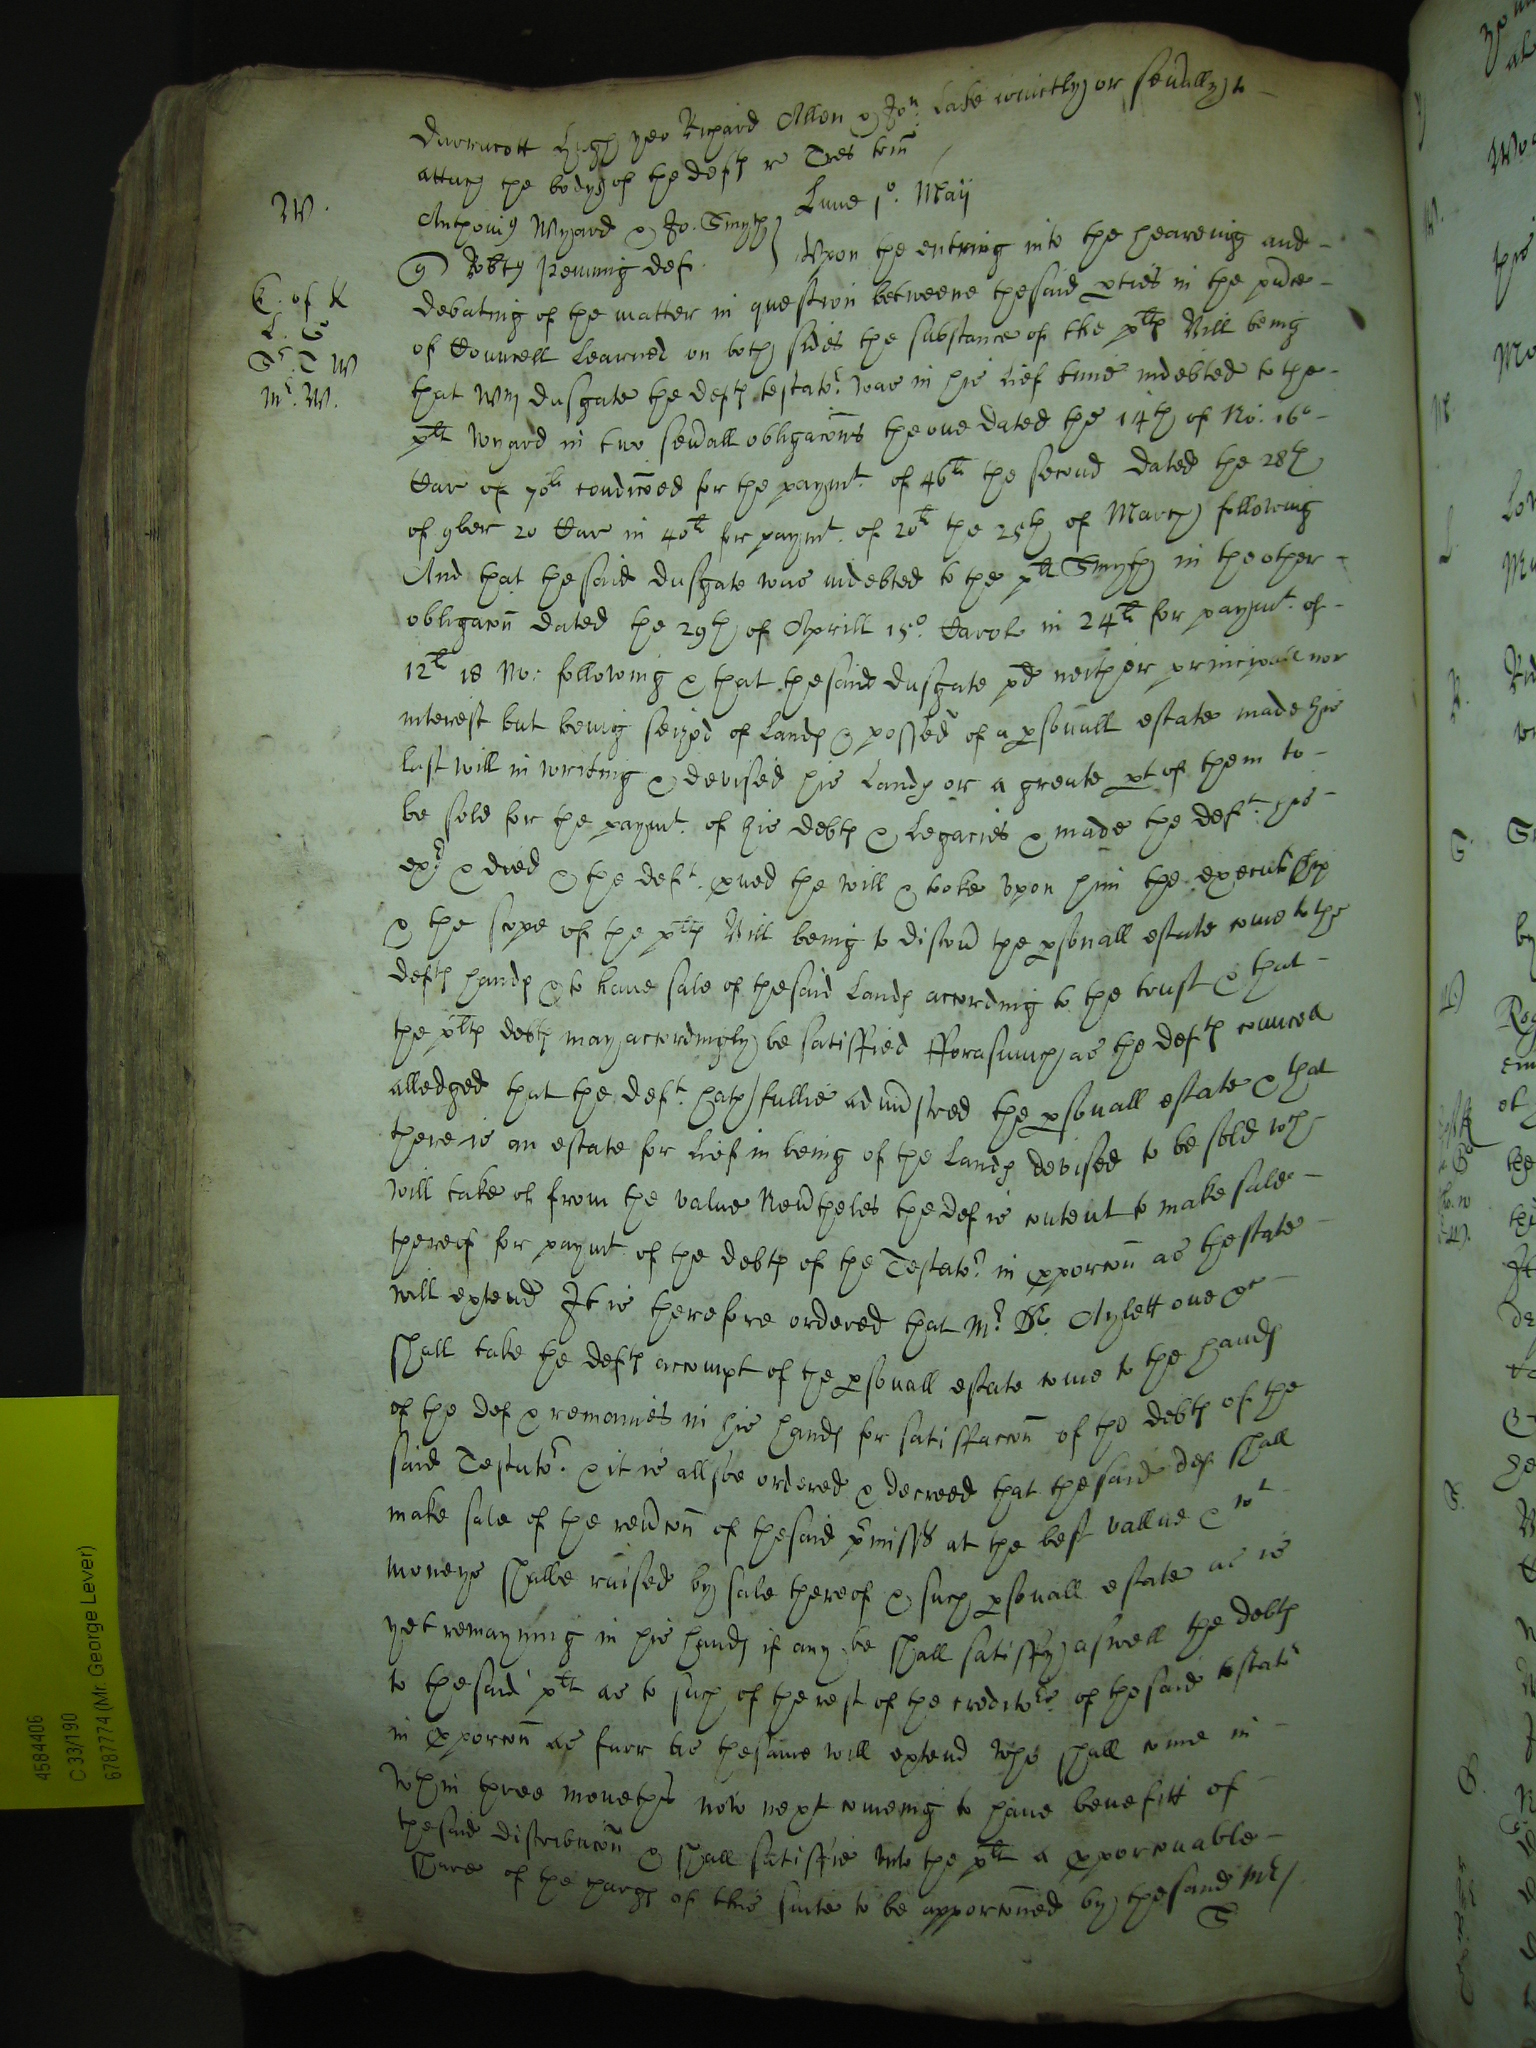 Darracott Hugh yeo Richard Allen & Jon. Lake ioinctly or seu'ally to
attach the body of the deft r Tres trin
W.
Lune 1o. Maij
Anthonie Wyard & Jo. Smyth
Robte Henning def.
Vpon the entring into the heareing and
C. of K
L. C
Sr. T W
Mr. W.
debating of the matter in question betweene the said pties in the pnce
of Councell Learned on both sides the substance of the plts Bill being
that Wm Dusgate the defts testator. was in his lief time indebted to the
plt Wyard in two seu'all obligacons the one dated the 14th of No. 16o
Car of 70li condicoed for the paymt. of 46li the second dated the 28th
of 9ber 20 Car in 40li for paymt. of 20li the 25th of March following
And that the said Dusgate was indebted to the plt Smyth in the other
obligacon dated the 29th of Aprill 15o. Carol in 24li for paymt. of
12li 18 No: following & that the said Dusgate pd neither principall nor
interest but being seized of Lands & possed of a psonall estate made his
last will in writing & devised his Lands or a greate pt of them to
be sold for the paymt. of his debts & Legacies & made the deft. his
exr & died & the deft. pued the will & tooke vpon him the executrship
& the scope of the plts Bill being to discou' the psonall estate come to the
defts hands & to haue sale of the said Lands according to the trust & that
the plts debts may accordingly be satisfied fforasmuch as the defts councell
alledged that the deft. hath fullie adm'istred the psonall estate & that
there is an estate for lief in being of the Lands devised to be sold wch
will take of from the value Neu'theles the def is content to make sale
thereof for paymt of the debts of the Testator. in pporcon as the state
will extend It is therefore ordered that Mr. Dr. Aylett one &c
shall take the defts accompt of the psonall estate come to the hands
of the def & remaines in his hands for satisfaccon of the debts of the
said Testator. & it is allsoe ordered & decreed that the said def shall
make sale of the reu'con of the said pmisss at the best vallue & wt
moneys shalbe raised by sale thereof & such psonall estate as is
yet remayning in his hands if any be shall satisfy aswell the debts
to the said plt as to such of the rest of the creditors. of the said testator
in pporcon as farr as the same will extend who shall come in
wthin three moneths now next comeing to haue benefitt of
the said distribucon & shall satisfie vnto the plt a pporconable
share of the chargs of this suite to be apporconed by the said Mr
S
4584406
C 33/190
6787774 (Mr. George Lever)